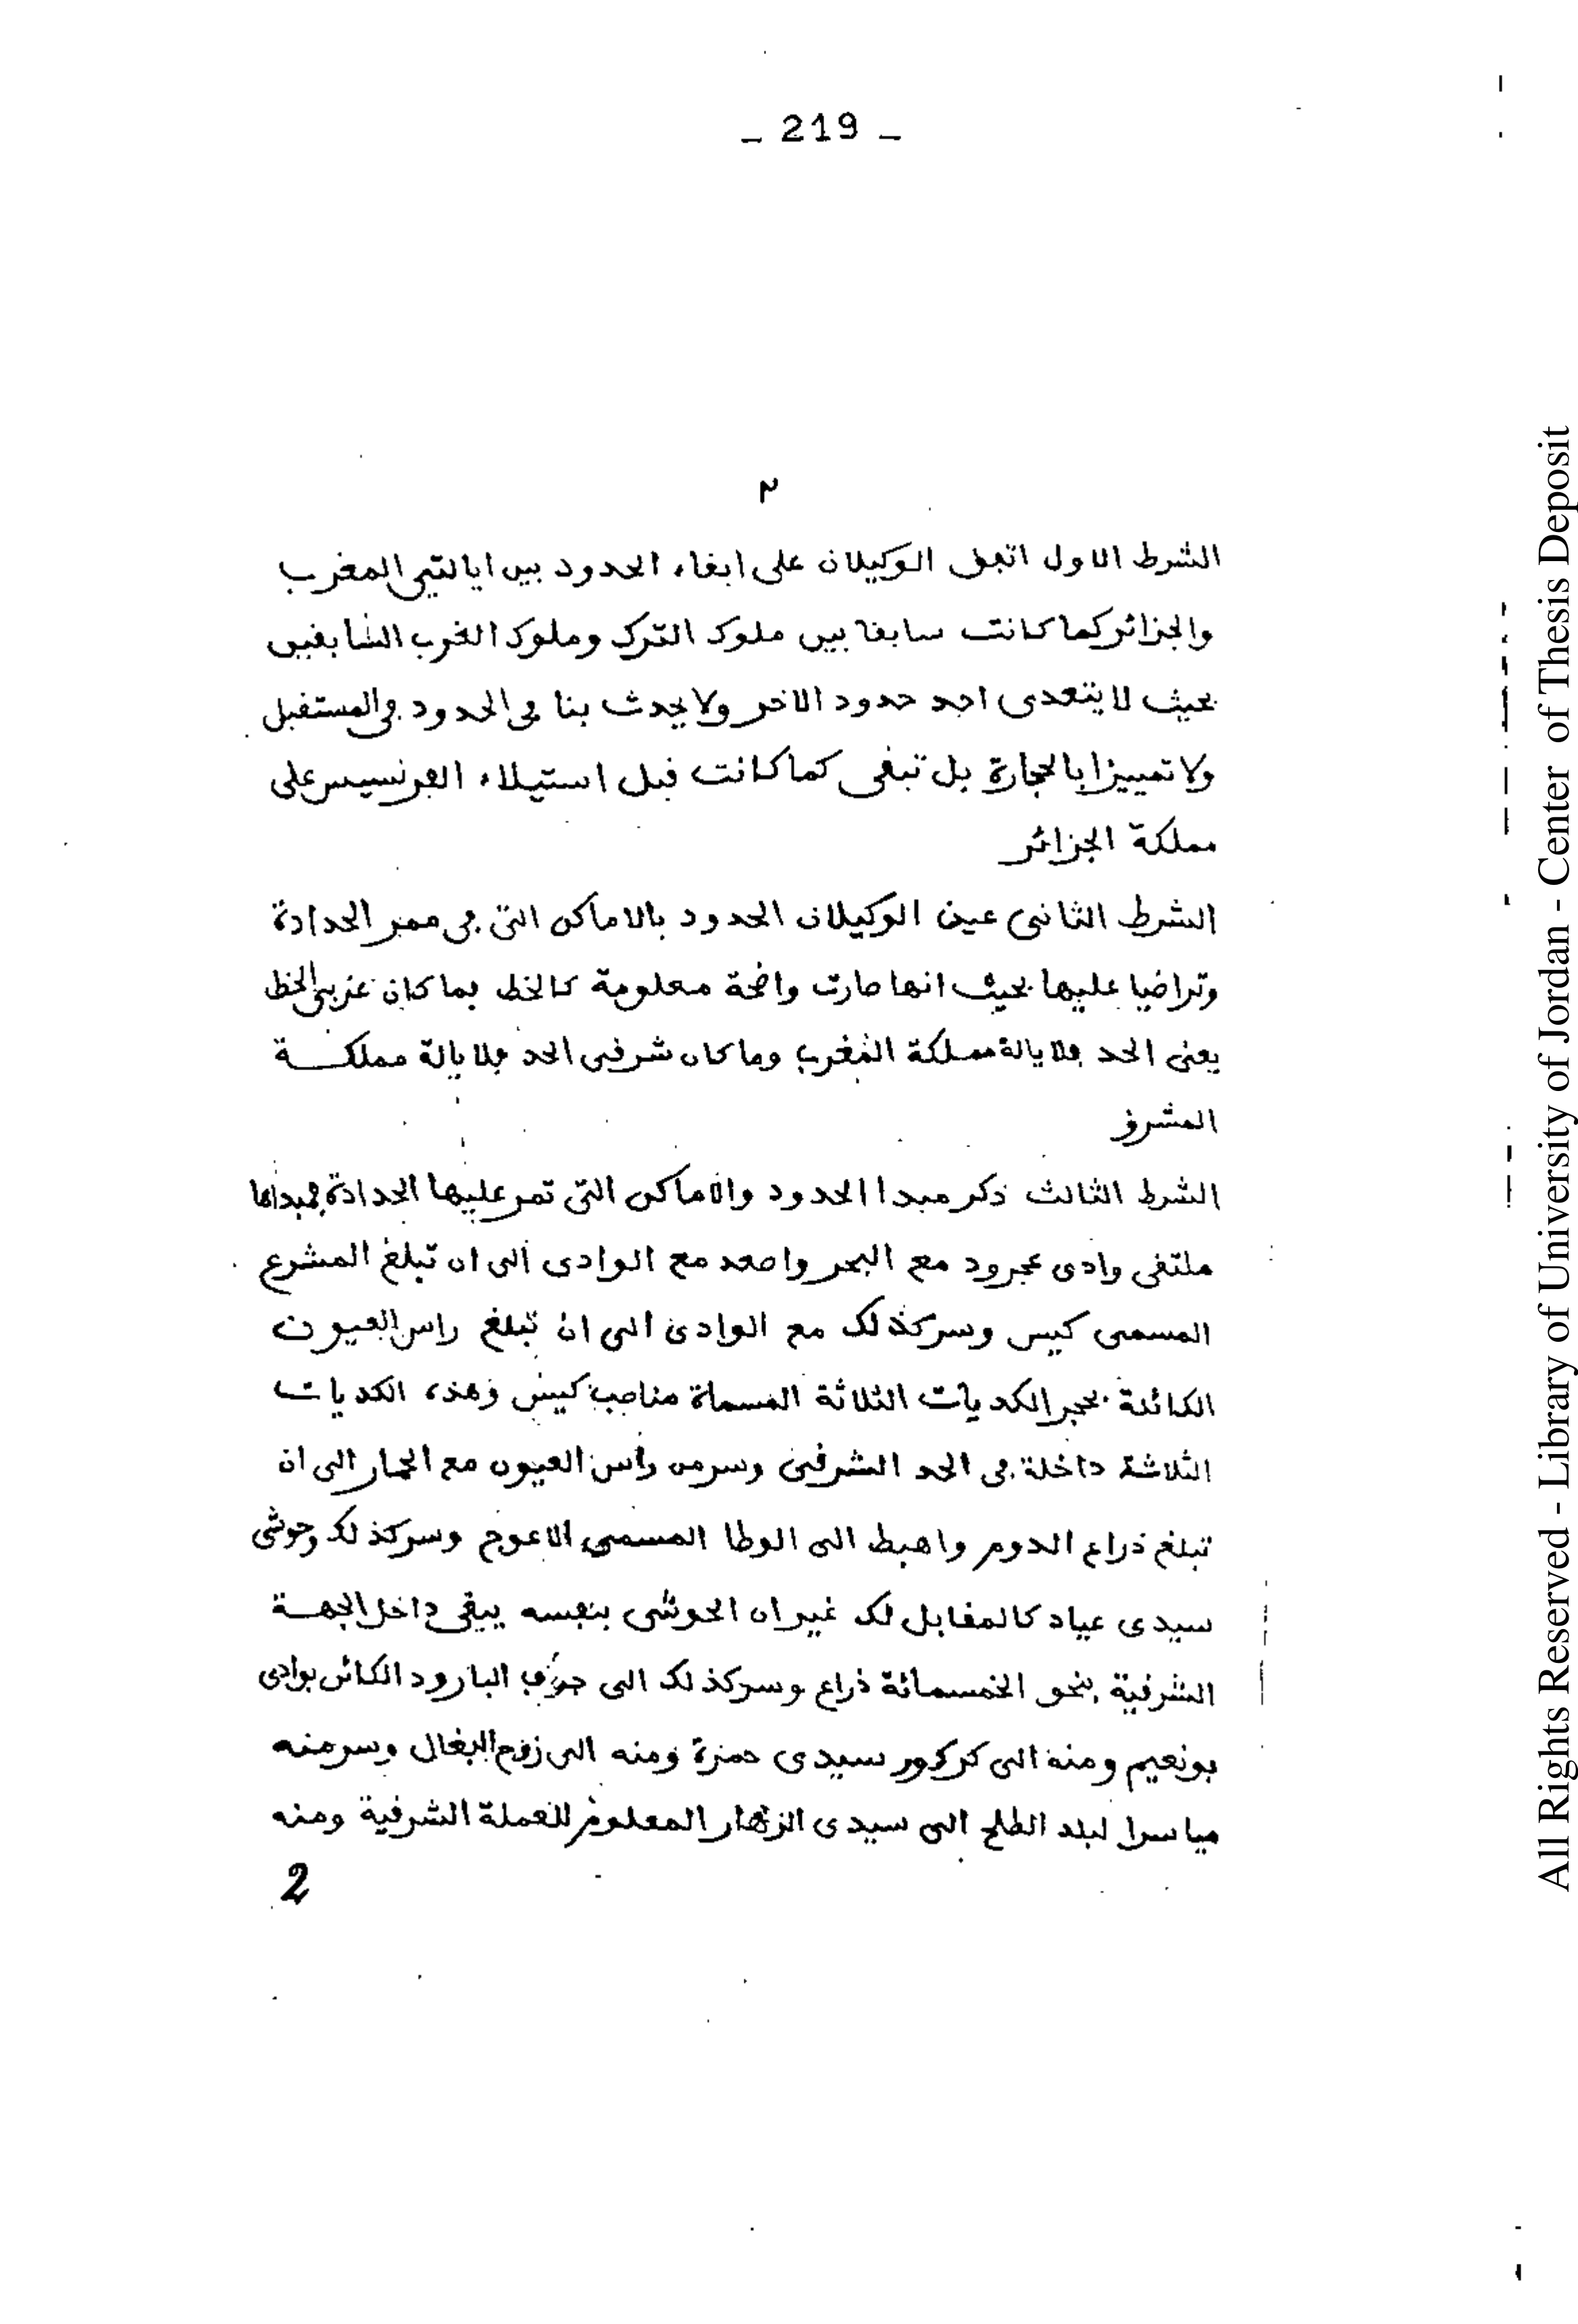 _ 219 _
٢
الشرط الاول اتفق الوكيلان على ابقاء الحدود بين ايالتي المغرب
والجزائر كما كانت سابقا بين ملوك الترك وملوك الغرب السابقين
بحيث لا يتعدى احد حدود الاخر ولا يحدث بنا في الحدود في المستقبل
ولا تمييزا بالحجارة بل تبقى كما كانت قبل استيلاء الفرنسيس على
مملكة الجزائر
الشرط الثاني عين الوكيلان الحدود بالاماكن التي في ممر الحدادة
وتراضيا عليها بحيث انها صارت واضحة معلومة كالخط فما كان غربي الخط
يعني الحد فلايالة مملكة المغرب وما كان شرقي الحد فلايالة مملكـــة
المشرق
الشرط الثالث ذكر مبدا الحدود والاماكن التي تمر عليها الحدادة فمبداها
ملتقى وادى عجرود مع البحر واصعد مع الوادى الى ان تبلغ المشرع
المسمى كيس وسر كذلك مع الوادى الى ان تبلغ راس العيون
الكائنة بحجر الكديات الثلاثة المسماة مناصب كيس وهذه الكديات
الثلاثة داخلة في الحد الشرقي وسر من راس العيون مع الحمار الى ان
تبلغ ذراع الدوم واهبط الى الوطا المسمى الاعوج وسر كذلك وحوش
سيدى عياد كالمقابل لك غير ان الحوش بنفسه يبقى داخل الجهـــة
الشرقية بنحو الخمسمائة ذراع وسر كذلك الى جرف البارود الكائن بوادى
بونعيم ومنه الى كركور سيدى حمزة ومنه الى زوج البغال وسر منه
مياسرا لبلد الطلح الى سيدى الزهار المعلوم للعملة الشرقية ومنه
2
All Rights Reserved - Library of University of Jordan - Center of Thesis Deposit